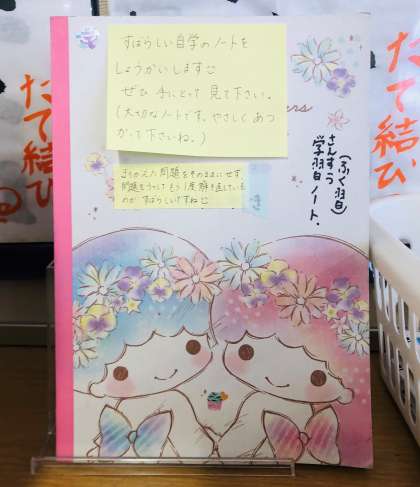 すばらしい自学のノートを
しょうかいします☺
ぜひ 手にとって 見て下さい。
(大切なノートです。やさしくあつ
かって下さいね。)
まちがえた問題をそのままにせず、
問題をうつしてもう1度解き直しているの
が すばらしいですね☺
(ふく習)
さんすう
学習ノート.
たて結び
たて結び